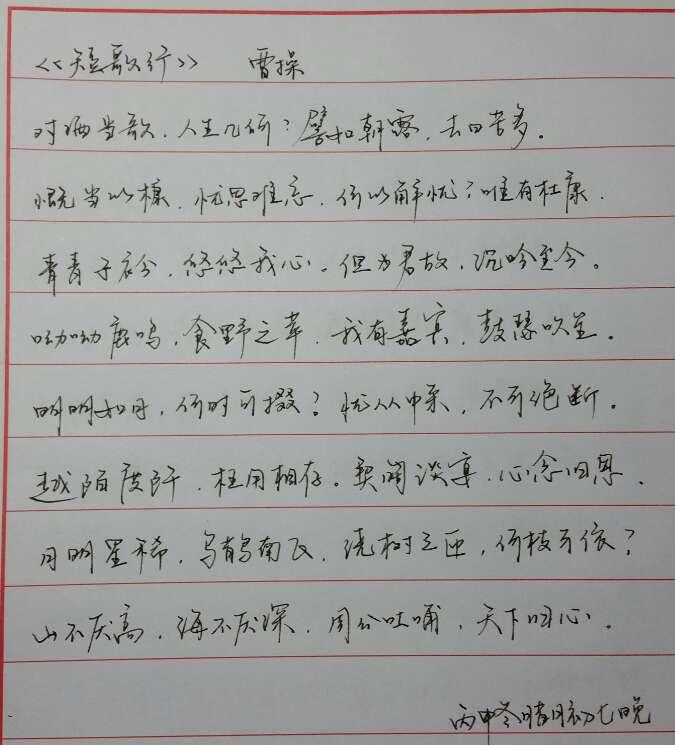 《短歌行》 曹操
对酒当歌,人生几何?譬如朝露,去日苦多。
慨当以慷,忧思难忘,何以解忧?唯有杜康.
青青子衿,悠悠我心。但为君故,沉吟至今。
呦呦鹿鸣,食野之苹,我有嘉宾,鼓瑟吹笙。
明明如月,何时可掇?忧从中来,不可绝断。
越陌度阡,枉用相存。契阔谈宴,心念旧恩.
月明星稀,乌鹊南飞,绕树三匝,何枝可依?
山不厌高,海不厌深,周公吐哺,天下归心。
丙申冬腊月初七晚